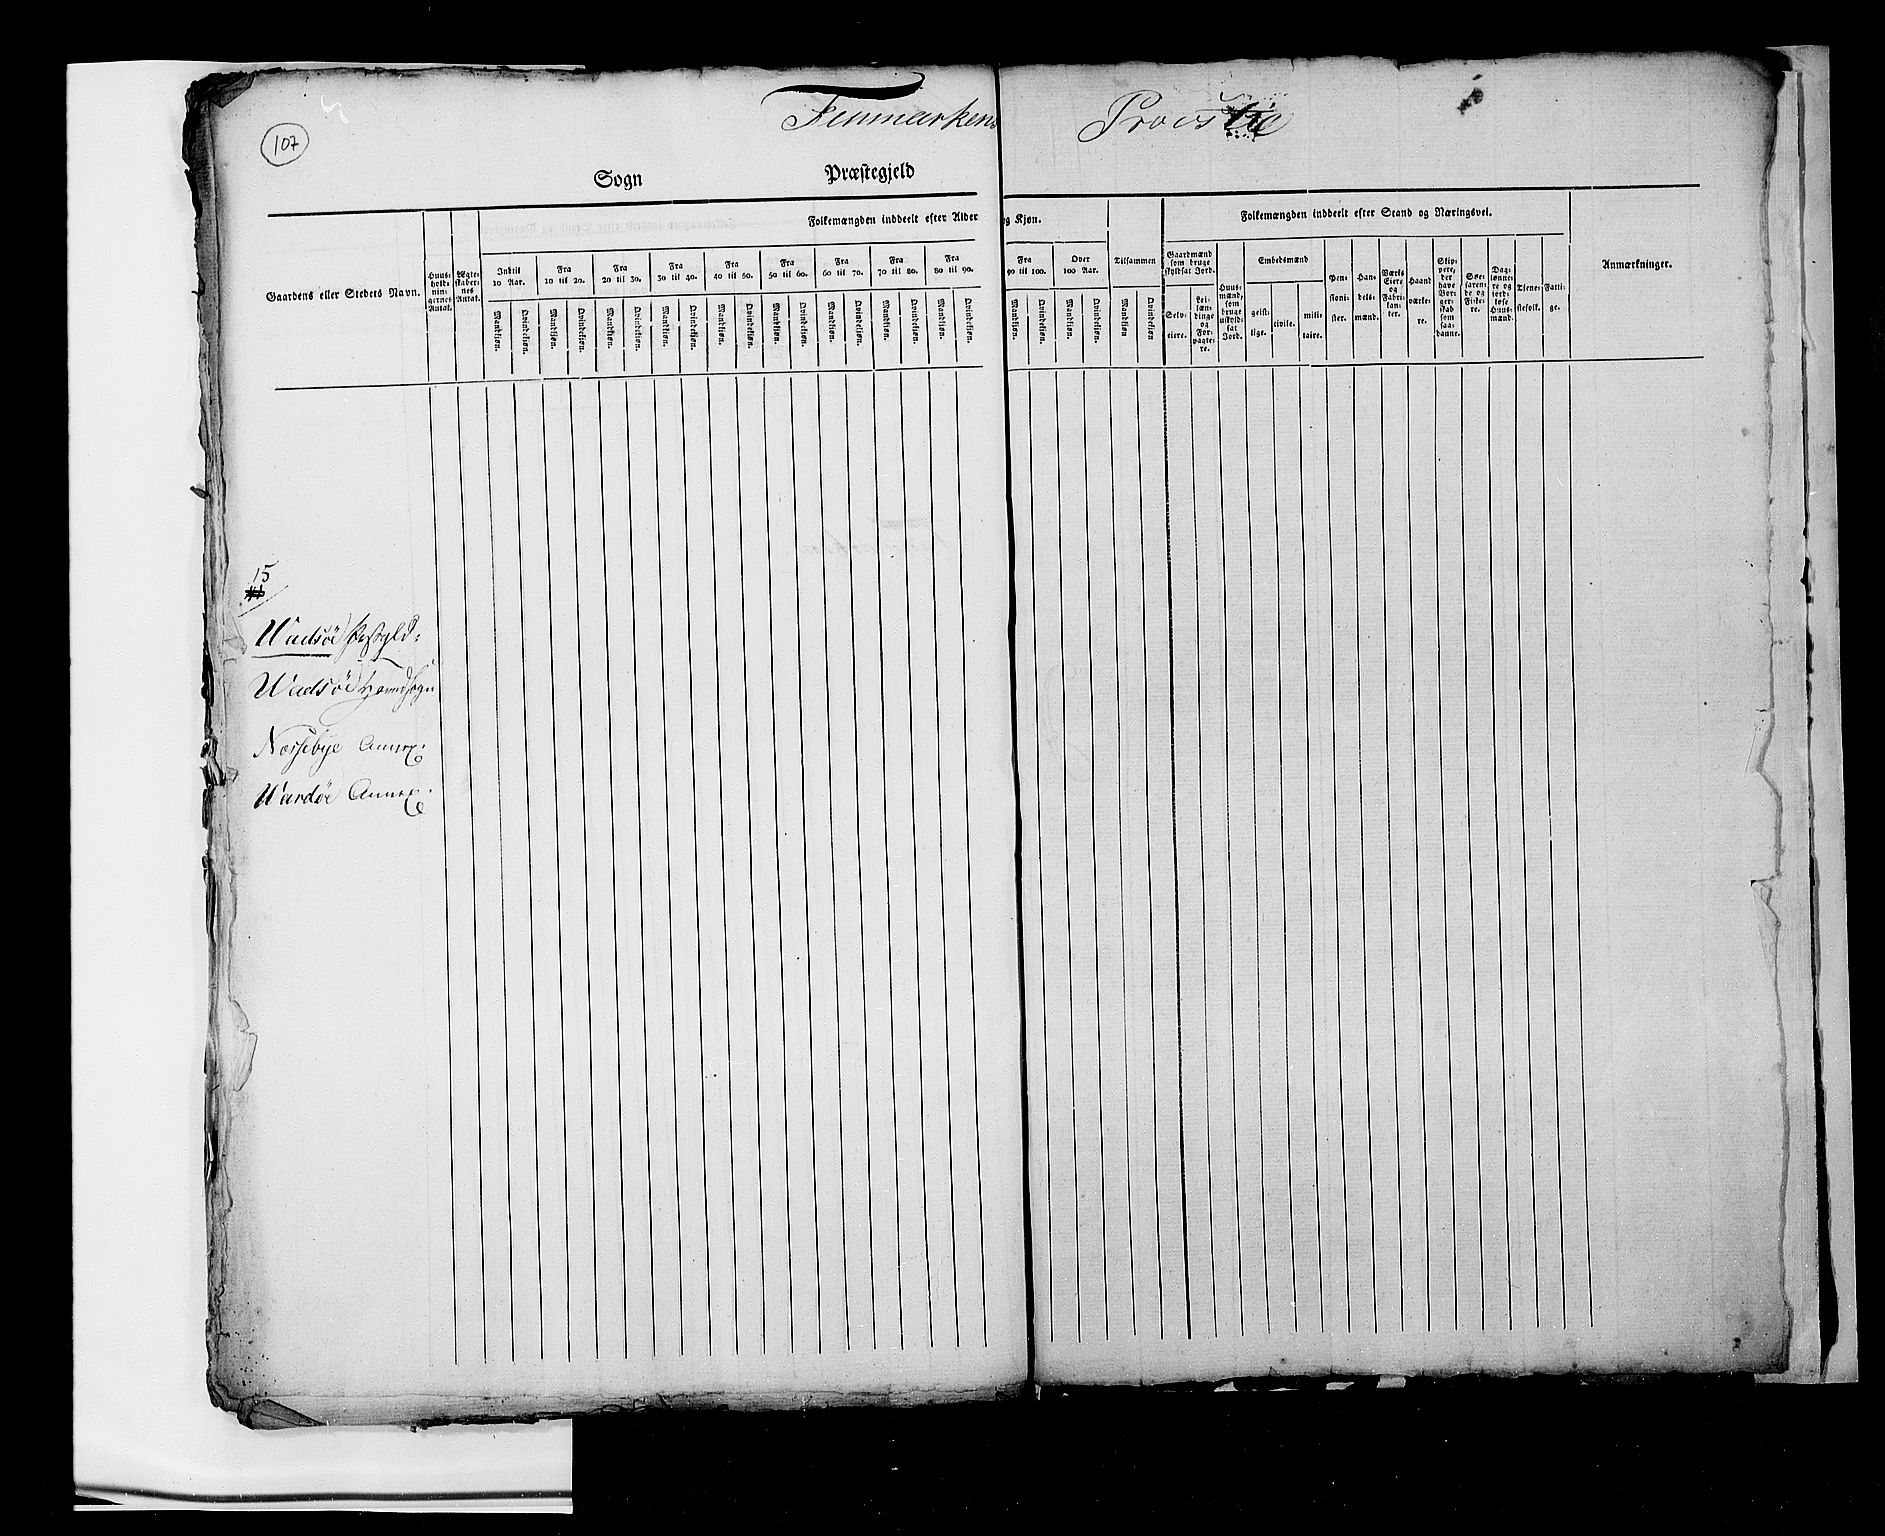 107
Finmarkens Provstie
Sogn Præstegjeld
Gaardens eller Stedets Navn.
Huusholdningernes Antal.
Ægteskabernes Antal.
Folkemængden inddeelt efter Alder og Kjøn.
Indtil 10 Aar.
Fra 10 til 20.
Fra 20 til 30.
Fra 30 til 40.
Fra 40 til 50.
Fra 50 til 60.
Fra 60 til 70.
Fra 70 til 80.
Fra 80 til 90.
Fra 90 til 100.
Over 100 Aar.
Tilsammen
Mandkjøn. Qvindekjøn. Mandkjøn. Qvindekjøn. Mandkjøn. Qvindekjøn. Mandkjøn. Qvindekjøn. Mandkjøn. Qvindekjøn. Mandkjøn. Qvindekjøn. Mandkjøn. Qvindekjøn. Mandkjøn. Qvindekjøn. Mandkjøn. Qvindekjøn. Mandkjøn. Qvindekjøn. Mandkjøn. Qvindekjøn. Mandkjøn Qvindekjøn
Folkemængden inddeelt efter Stand og Næringsvei.
Gaardmænd som bruge skyldsat Jord.
Selveiere.
Leilændinge og Forpagtere.
Huusmænd, som bruge uskyldsat Jord.
Embedsmænd
geistlige.
civile.
militaire.
Pensionister.
Handelsmænd.
Værks Eiere og Fabrikanter.
Haandværkere.
Skippere, der have Borgerskab som saadanne.
Søefarende og Fiskere.
Daglønnere og jordløse Huusmænd.
Tjenestefolk.
Fattige.
Anmærkninger.
15
Wadsöe Præstgld:
Wadsöe Hovedsogn
Næssebye Annex.
Wardöe Annex.